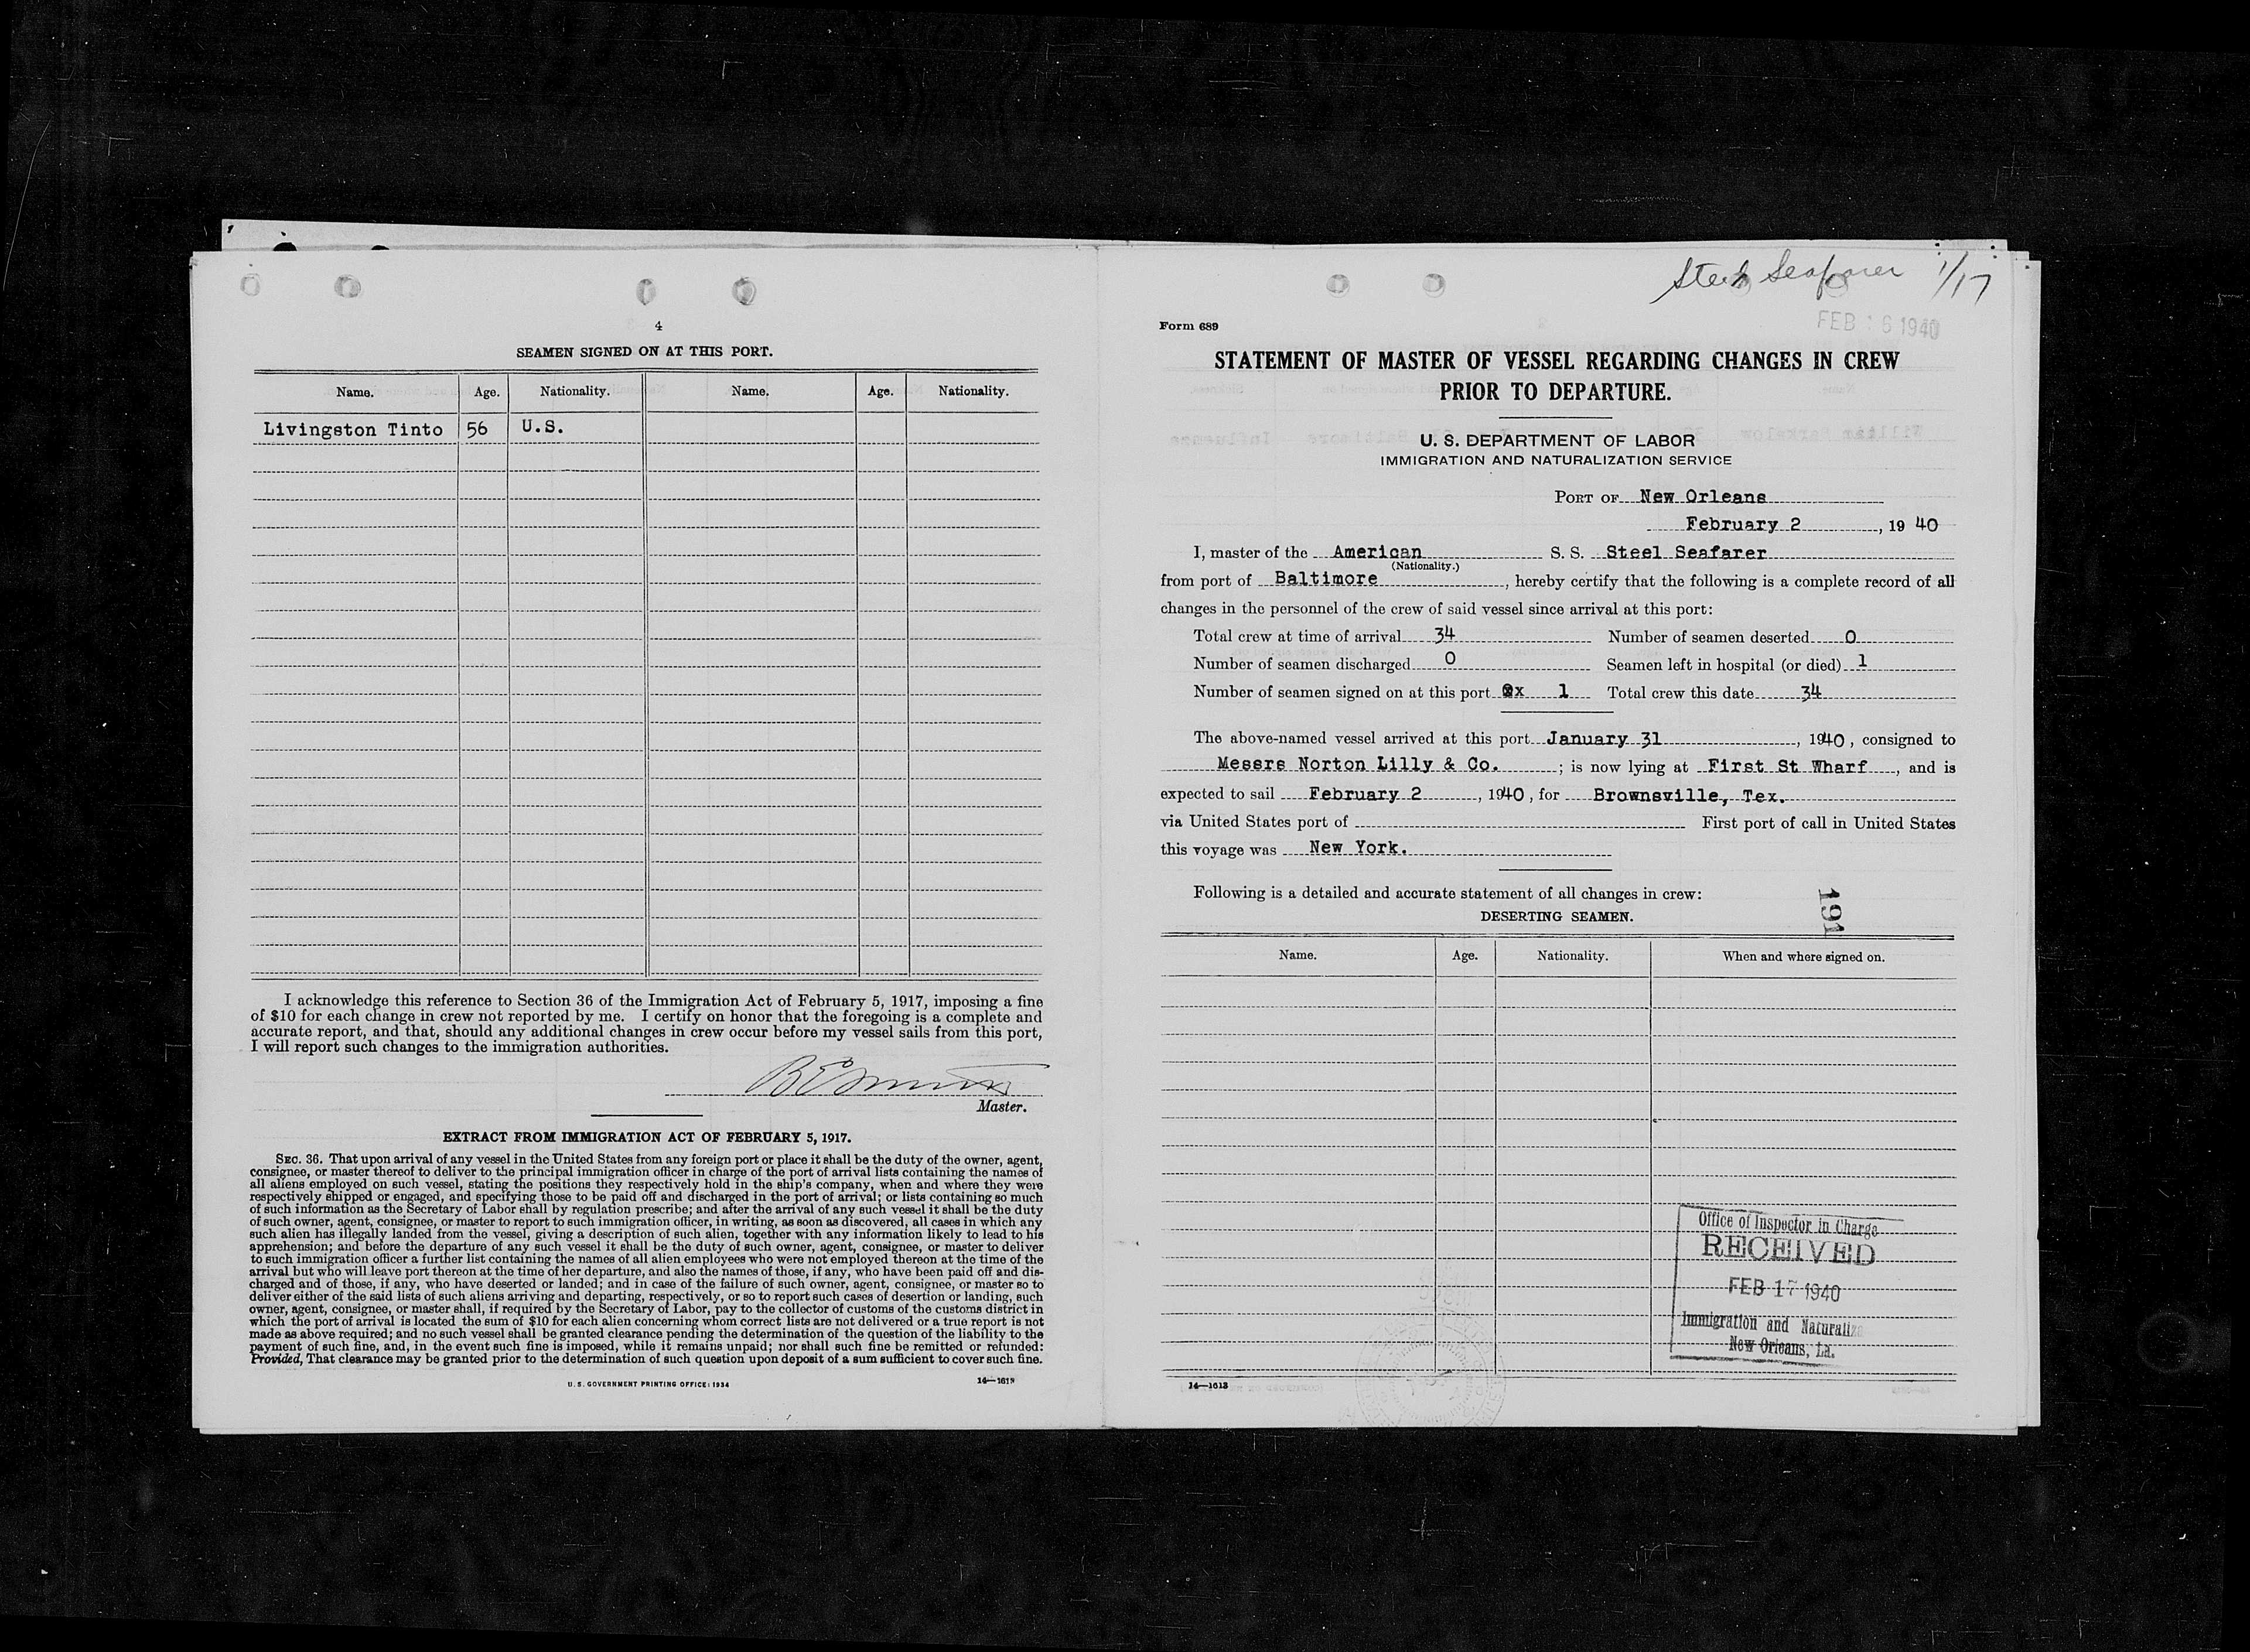 4
SEAMEN SIGNED ON AT THIS PORT.
Name. Age. Nationality. Name. Age. Nationality.
Livingston Tinto 56 U.S.
I acknowledge this reference to Section 36 of the Immigration Act of February 5, 1917, imposing a fine
of $10 for each change in crew not reported by me. I certify on honor that the foregoing is a complete and
accurate report, and that, should any additional changes in crew occur before my vessel sails from this port,
I will report such changes to the immigration authorities.
Master.
EXTRACT FROM IMMIGRATION ACT OF FEBRUARY 5, 1917.
SEC. 36. That upon arrival of any vessel in the United States from any foreign port or place it shall be the duty of the owner, agent,
consignee, or master thereof to deliver to the principal immigration officer in charge of the port of arrival lists containing the names of
all aliens employed on such vessel, stating the positions they respectively hold in the ship's company, when and where they were
respectively shipped or engaged, and specifying those to be paid off and discharged in the port of arrival; or lists containing so much
of such information as the Secretary of Labor shall by regulation prescribe; and after the arrival of any such vessel it shall be the duty
of such owner, agent, consignee, or master to report to such immigration officer, in writing, as soon as discovered, all cases in which any
such alien has illegally landed from the vessel, giving a description of such alien, together with any information likely to lead to his
apprehension; and before the departure of any such vessel it shall be the duty of such owner, agent, consignee, or master to deliver
to such immigration officer a further list containing the names of all alien employees who were not employed thereon at the time of the
arrival but who will leave port thereon at the time of her departure, and also the names of those, if any, who have been paid off and dis-
charged and of those, if any, who have deserted or landed; and in case of the failure of such owner, agent, consignee, or master so to
deliver either of the said lists of such aliens arriving and departing, respectively, or so to report such cases of desertion or landing, such
owner, agent, consignee, or master shall, if required by the Secretary of Labor, pay to the collector of customs of the customs district in
which the port of arrival is located the sum of $10 for each alien concerning whom correct lists are not delivered or a true report is not
made as above required; and no such vessel shall be granted clearance pending the determination of the question of the liability to the
payment of such fine, and, in the event such fine is imposed, while it remains unpaid; nor shall such fine be remitted or refunded:
Provided, That clearance may be granted prior to the determination of such question upon deposit of a sum sufficient to cover such fine.
U. S. GOVERNMENT PRINTING OFFICE: 1934 14—1613
Steel Seafarer 1/17
Form 689
FEB 16 1940
STATEMENT OF MASTER OF VESSEL REGARDING CHANGES IN CREW
PRIOR TO DEPARTURE.
U. S. DEPARTMENT OF LABOR
IMMIGRATION AND NATURALIZATION SERVICE
PORT OF New Orleans
February 2, 19 40
I, master of the American S. S. Steel Seafarer
(Nationality.)
from port of Baltimore, hereby certify that the following is a complete record of all
changes in the personnel of the crew of said vessel since arrival at this port:
Total crew at time of arrival 34 Number of seamen deserted 0
Number of seamen discharged 0 Seamen left in hospital (or died) 1
Number of seamen signed on at this port 1 Total crew this date 34
The above-named vessel arrived at this port January 31, 1940, consigned to
Messrs Norton Lilly & Co.; is now lying at First St Wharf, and is
expected to sail February 2, 1940, for Brownsville, Tex.
via United States port of First port of call in United States
this voyage was New York.
Following is a detailed and accurate statement of all changes in crew:
191
DESERTING SEAMEN.
Name. Age. Nationality. When and where signed on.
Office of Inspector in Charge
RECEIVED
FEB 17 1940
Immigration and Naturaliz
New Orleans, La.
14—1613